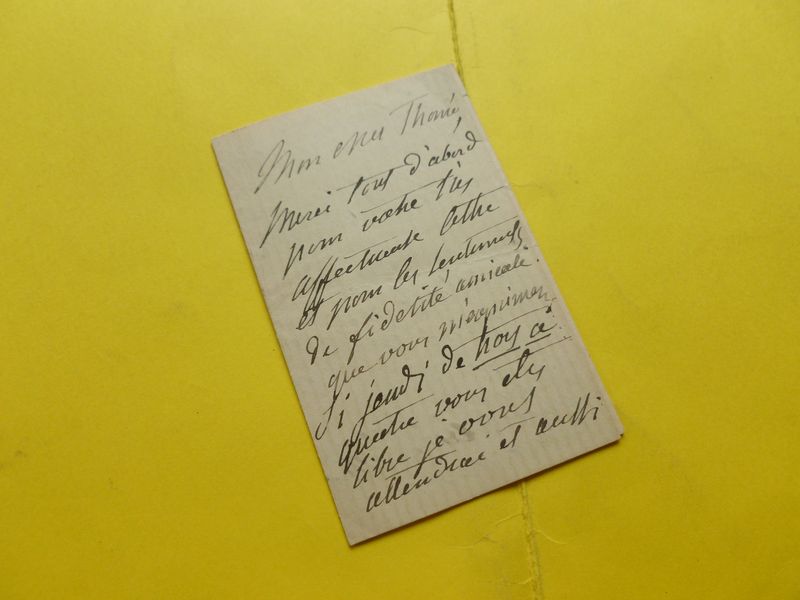 Mon cher Thomé
Merci tout d'abord
pour votre très
affectueuse lettre
et pour les sentiments
de fidelité amicale
que vous m'exprimez
Si jeudi de trois à
quatre vous etes
libre je vous
attendrai et aussi